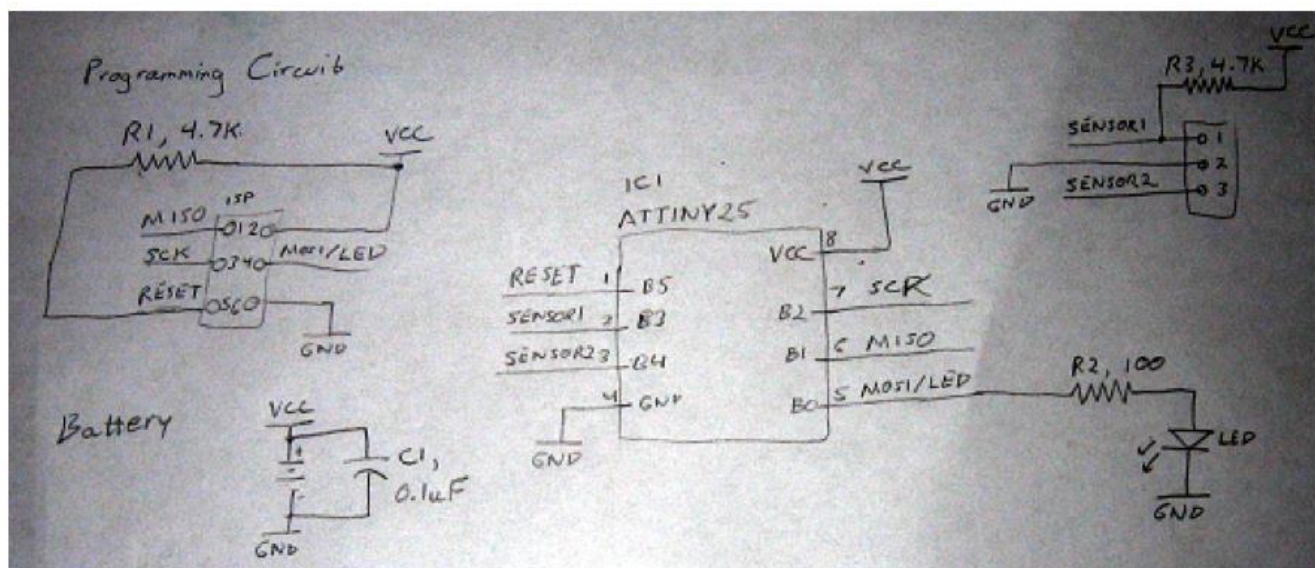 Programming Circuit
R1, 4.7K
VCC
ISP
MISO
012O
SCK
O34O
MOSI/LED
RESET
O56O
GND
Battery
VCC
+
-
C1,
0.1uF
GND
IC1
ATTINY25
VCC
RESET 1 B5
SENSOR1 2 B3
SENSOR2 3 B4
4 GND
GND
VCC 8
B2 7 SCK
B1 6 MISO
B0 5 MOSI/LED
R2, 100
LED
GND
VCC
R3, 4.7K
SENSOR1
1
2
GND
SENSOR2
3